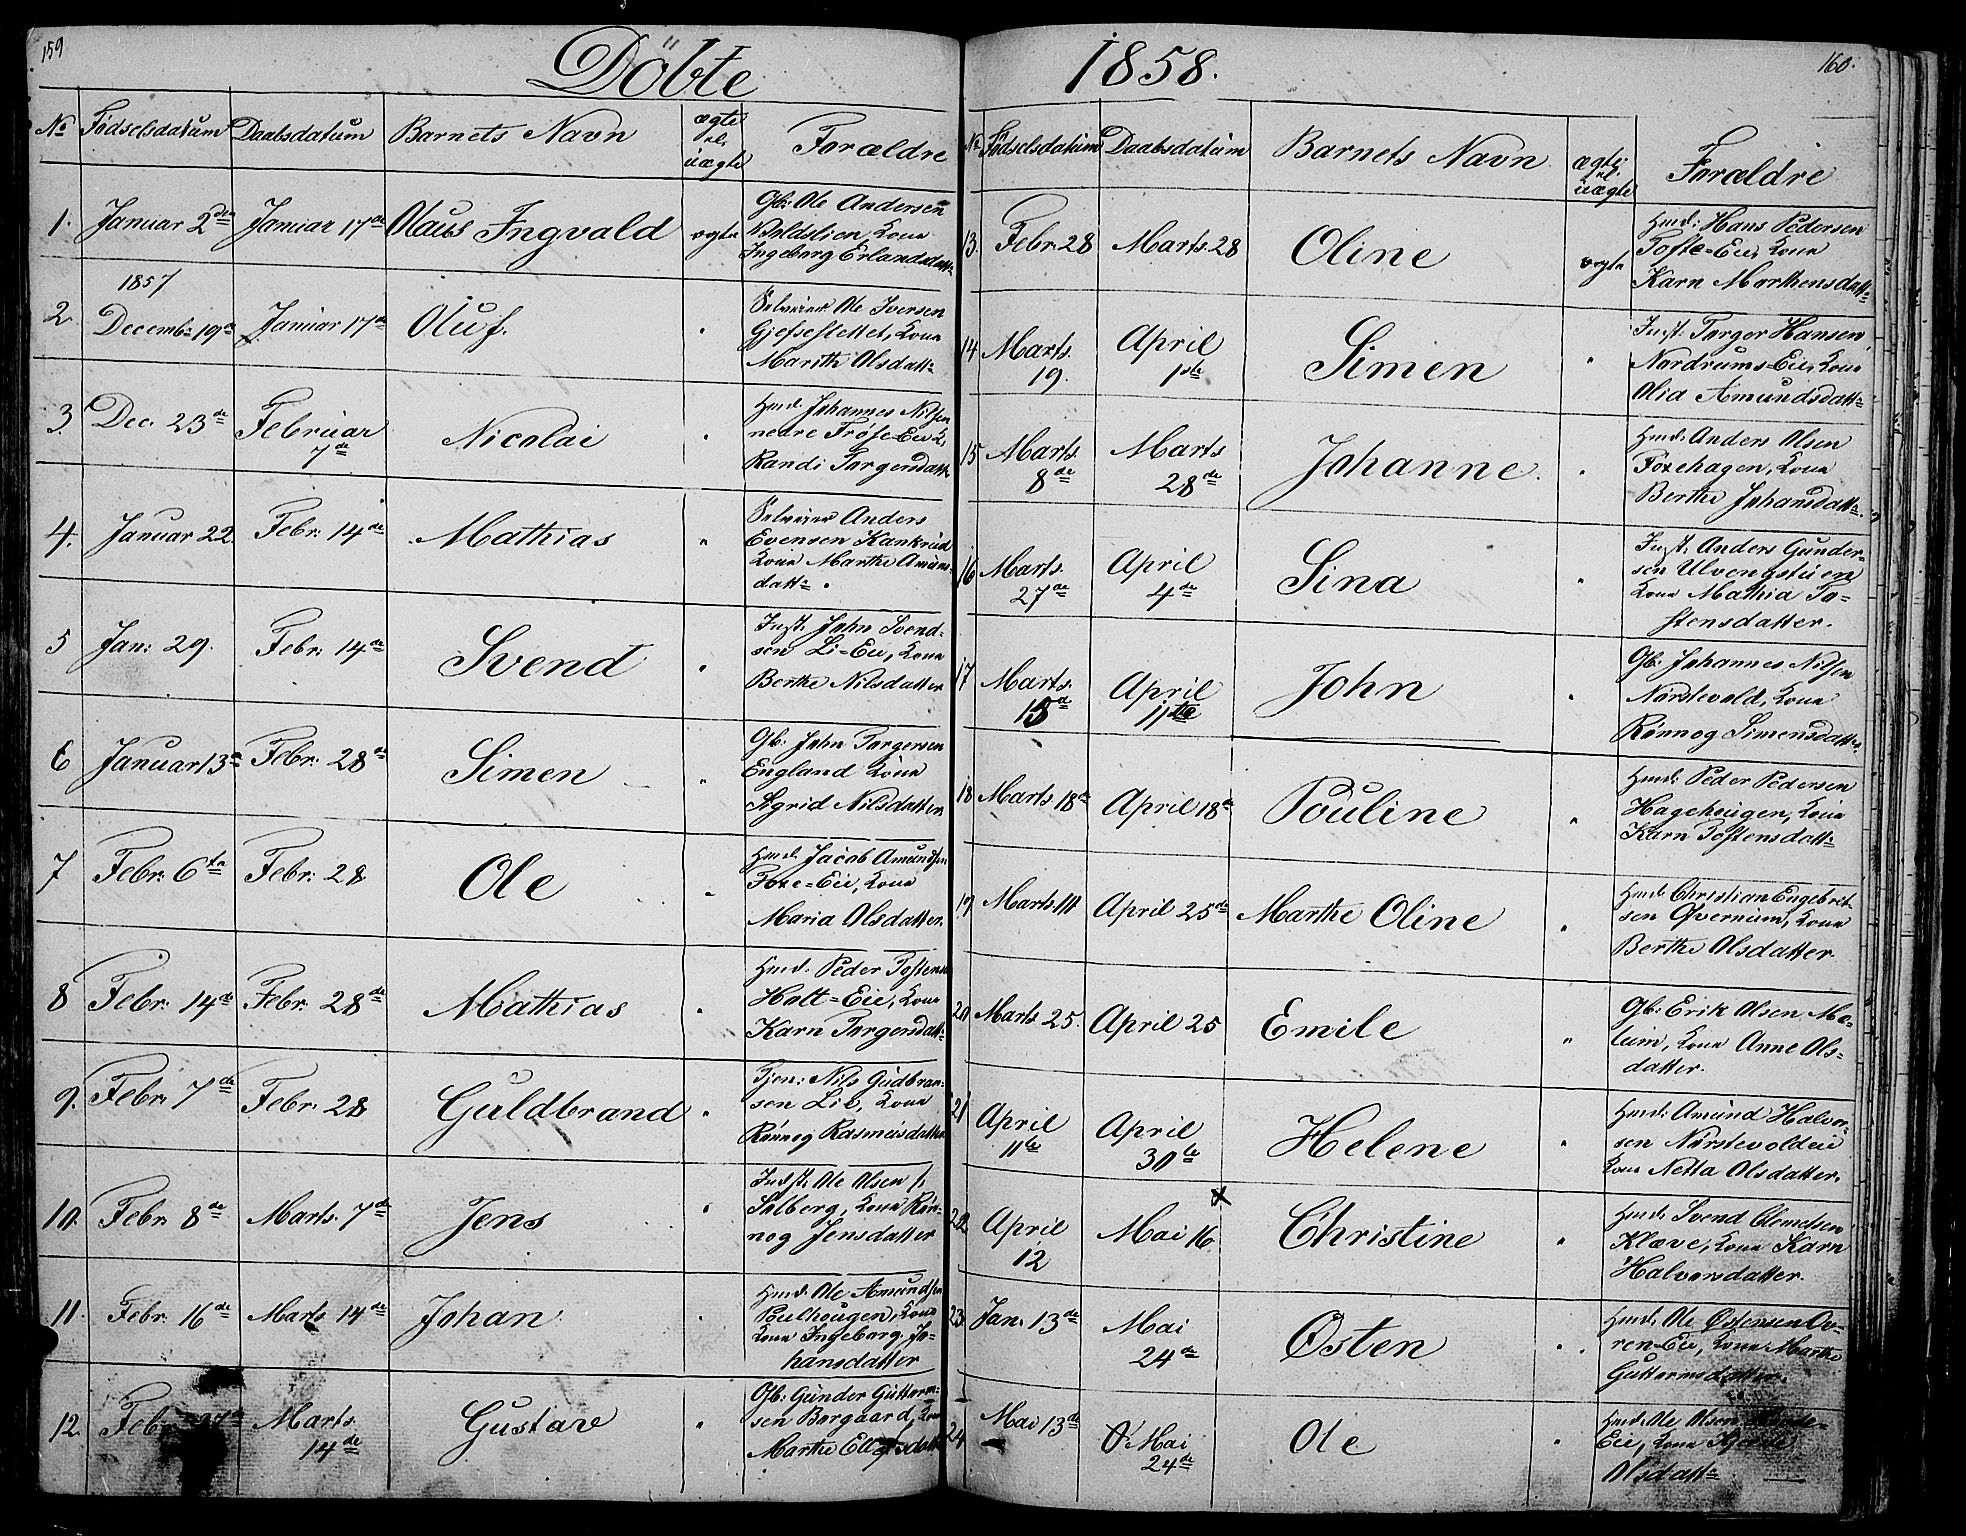 159
Döbte
No Födselsdatum Daabsdatum Barnets Navn ægte el. uægte Forældre
1. Januar 2den Januar 17de Olaus Ingvald ægte Gb: Ole Andersen
Kona
Ingeborg Erlandsdatt:
1857
2. Decemb: 19de Januar 17de Oluf. " Selveier Ole Iversen
Kona
Marith Olsdatt:
3. Dec. 23de Februar 7de Nicolai " Hmd: Johannes Nilsen
nedre Frøse-Eie K,
Randi Torgersdatt:
4. Januar 22. Febr: 14de Mathias " Selveier Anders
Evensen Kankrud
Kona Marthe Amuns-
datt:
5 Jan: 29. Febr: 14de Svend " Inst: John Svend-
sen Li-Eie, Kona
Berthe Nilsdatter
6 Januar 13de Febr: 28de Simen " Gb: John Torgersen
England Kona
Sigrid Nilsdatter
7 Febr: 6te Febr: 28 Ole " Hmd: Jacob Amundsen
Foxe-Eie, Kona
Maria Olsdatter
8 Febr: 14de Febr: 28de Mathias " Hmd: Peder Tostens
Holt-Eie, Kona
Karn Torgersdatt:
9. Febr: 7de Febr: 28 Guldbrand " Tjen: Nils Gudbran-
sen Lie, Kona
Rønnog Rasmusdatter
10. Febr: 8de Marts. 7de Jens " Indst: Ole Olsen
Solberg, Kona Røn-
nog Jensdatter
11. Febr: 16de Marts 14de Johan " Hmd: Ole Amundsen
Poulhougen, Kona
Kona Ingeborg Jo-
hansdatter
12. Febr: 27de Marts. 14de Gustav " Gb: Gunder Guttorm-
sen Borgaard, Kona
Marthe
1858.
160.
No Födselsdatum Daabsdatum Barnets Navn ægte el. uægte Forældre
13. Febr: 28 Marts. 28 Oline ægte Hmd: Hans Pedersen
Tofte-Eie, Kona
Karn Morthensdatt:
14 Marts. 19. April 1ste Simen " Inst: Torger Hansen
Nordrums-Eie, Kona
Olia Amundsdatt:
15 Marts. 8de Marts 28de Johanne. " Hmd: Anders Olsen
Foxehagen, Kona
Berthe Johansdatt:
16 Marts. 27de April 4de Sina " Inst: Anders Gunder-
sen Ulvengstuen
Kona Mathia To-
stensdatter.
17 Marts. 18de April 11te John " Gb: Johannes Nilsen
Norstevold, Kona
Rønnog Simensdatter
18 Marts 18de April 18de Pouline " Hmd: Peder Pedersen
Hagehougen, Kona
Karn Tostensdatt:
19 Marts. April 25de Marthe Oline " Hmd: Christian Engebret-
sen Qvernum, Kona
Berthe Olsdatter.
20. Marts 25. April 25 Emile " Gb: Erik Olsen Mæ-
lum, Kona Anne Ols-
datter.
21 April 11te April 30te Helene " Hmd: Amund Halvor-
sen Norstevoldeie
Kona Netta Olsdatter.
22. April 12 Mai 16 x Christine " Hmd: Svend Clemetsen
Klæve, Kona Karn
Halvorsdatter.
23. Jan: 13de Mai 24de Østen " Hmd: Ole Østensen Ov-
ren-Eie, Kona Marthe
Guttormsdatter.
24 Mai 13de Mai 24de Ole " Hmd: Ole Olsen
Eie, Kona
Olsdatt: